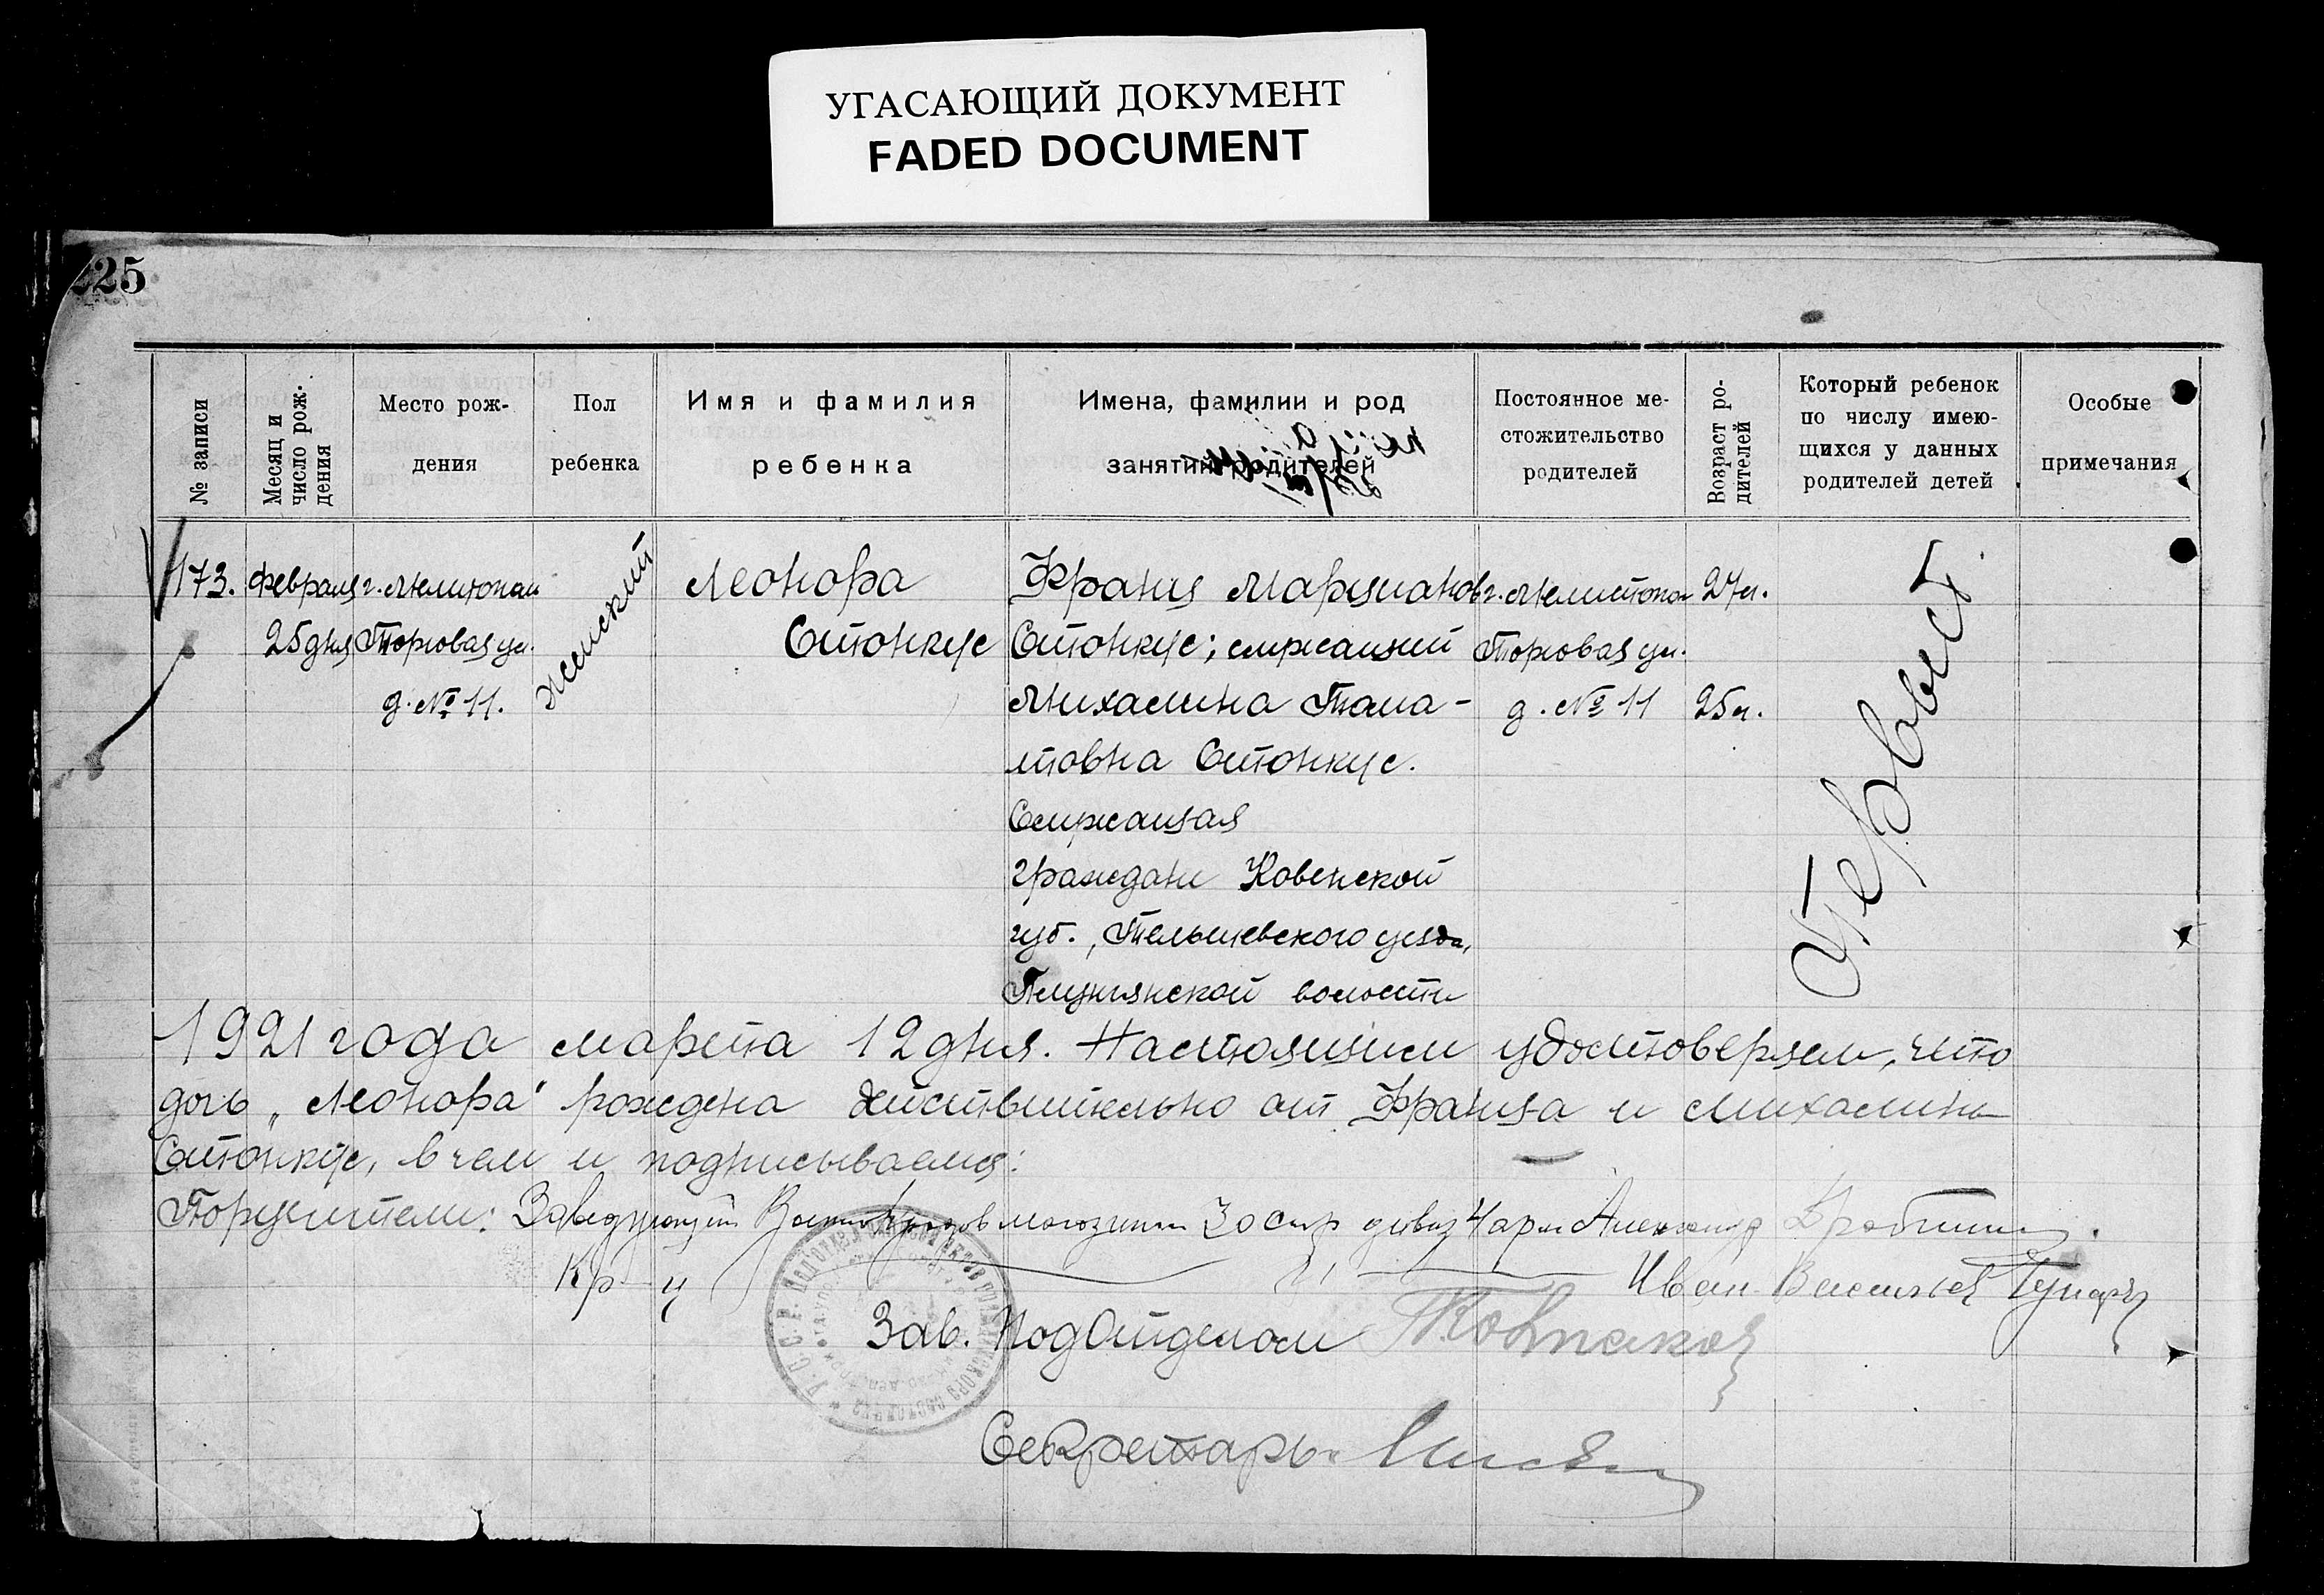 УГАСАЮЩИЙ ДОКУМЕНТ
FADED DOCUMENT
225
№ записи
Месяц и
число рож-
дения
Место рож-
дения
Пол
ребенка
Имя и фамилия
ребенка
Имена, фамилии и род
занятий родителей
Постоянное ме-
стожительство
родителей
Возраст ро-
дителей
Который ребенок
по числу имею-
щихся у данных
родителей детей
Особые
примечания
173.
Февраля
25 дня
г. Мелитопол
Торговая ул.
д. № 11.
женский
Леонора
Стонкус
Франц Марцианов
Стонкус; служащий
Михалина
товна Стонкус.
Служащая
граждане Ковенской
губ., Тельшевского уезда,
Плунгянской волости
г. Мелитопол
Торговая ул.
д. № 11
27 л.
25 л.
Первый
1921 года марта 12 дня. Настоящим удостоверяем, что
дочь „Леонора" рождена действительно от Франца и Михалины
Стонкус, в чем и подписываемся:
Поручители: Заведующий 30 стр дивиз Александр
Кр-ц Иван
Зав. ПодОтделом
Секретарь